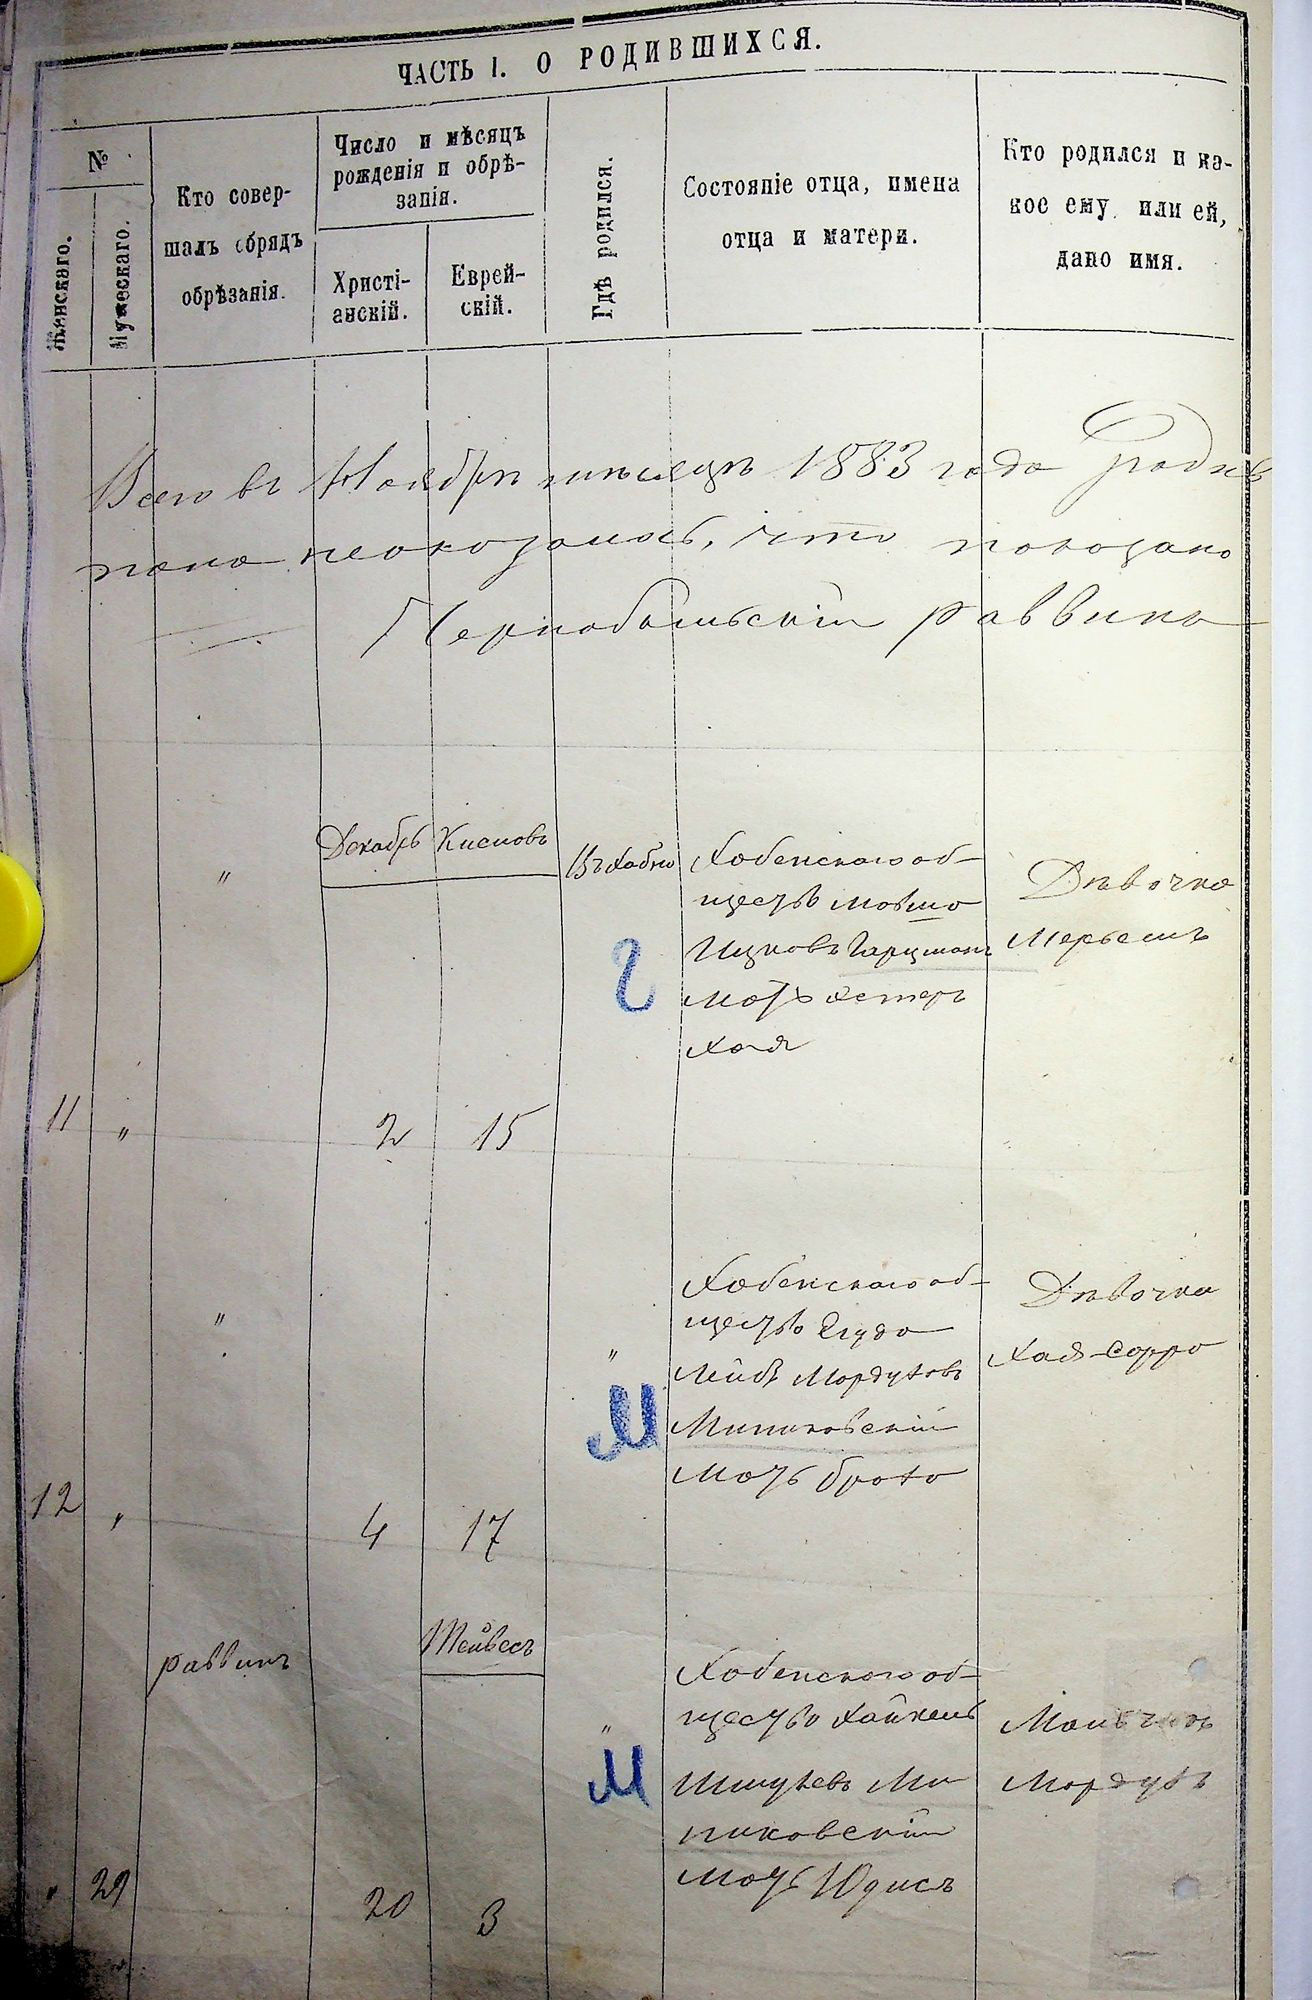 ЧАСТЬ I. О РОДИВШИХСЯ.
№
Женскаго.
Мужескаго.
Кто совер-
шалъ обрядъ
обрѣзанія.
Число и мѣсяцъ
рожденія и обрѣ-
занія.
Христі-
анскій.
Еврей-
скій.
Гдѣ родился.
Состояніе отца, имена
отца и матери.
Кто родился и ка-
кое ему или ей,
дано имя.
Всего въ Ноябрѣ мѣсяцѣ 1883 года
неоказалось, что показано
Чернобыльскій раввинъ
Декабрь Кислевъ
Въ Хабно
Хабенскаго об-
щества Мовша
Ицковъ Гарцманъ
Мать Эстеръ
Хая
Дѣвочка
Мерьемъ
Г
11 " 2 15
"
Хабенскаго об-
щества Егуда
Лейбъ Мордуховъ
Миньковскій
Мать Броха
Дѣвочка
Хая-Сорра
"
"
М
12 " 4 17
раввинъ
Тейвесъ
Хабенскаго об-
щества Хайкель
Ми
ньковскій
Мать Юдисъ
Мальчикъ
Мордухъ
"
М
" 29 20 3